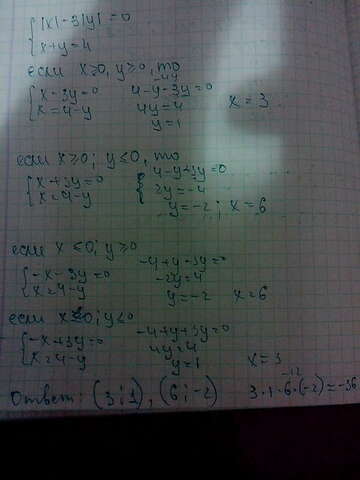 { |x|-3|y|=0
x+y=4
если x≥0, y≥0, то
{ x-3y=0 4-y-3y=0
x=4-y 4y=4 x=3
y=1
если x≥0; y≤0, то
{ x+3y=0 { 4-y+3y=0
x=4-y 2y=-4
y=-2; x=6
если x≤0; y≥0
{ -x-3y=0 -4+y-3y=0
x=4-y -2y=4
y=-2 x=6
если x≤0; y≤0
{ -x+3y=0 -4+y+3y=0
x=4-y 4y=4
y=1 x=3
Ответ: (3;1), (6;-2) 3·1·6·(-2)=-36
-12